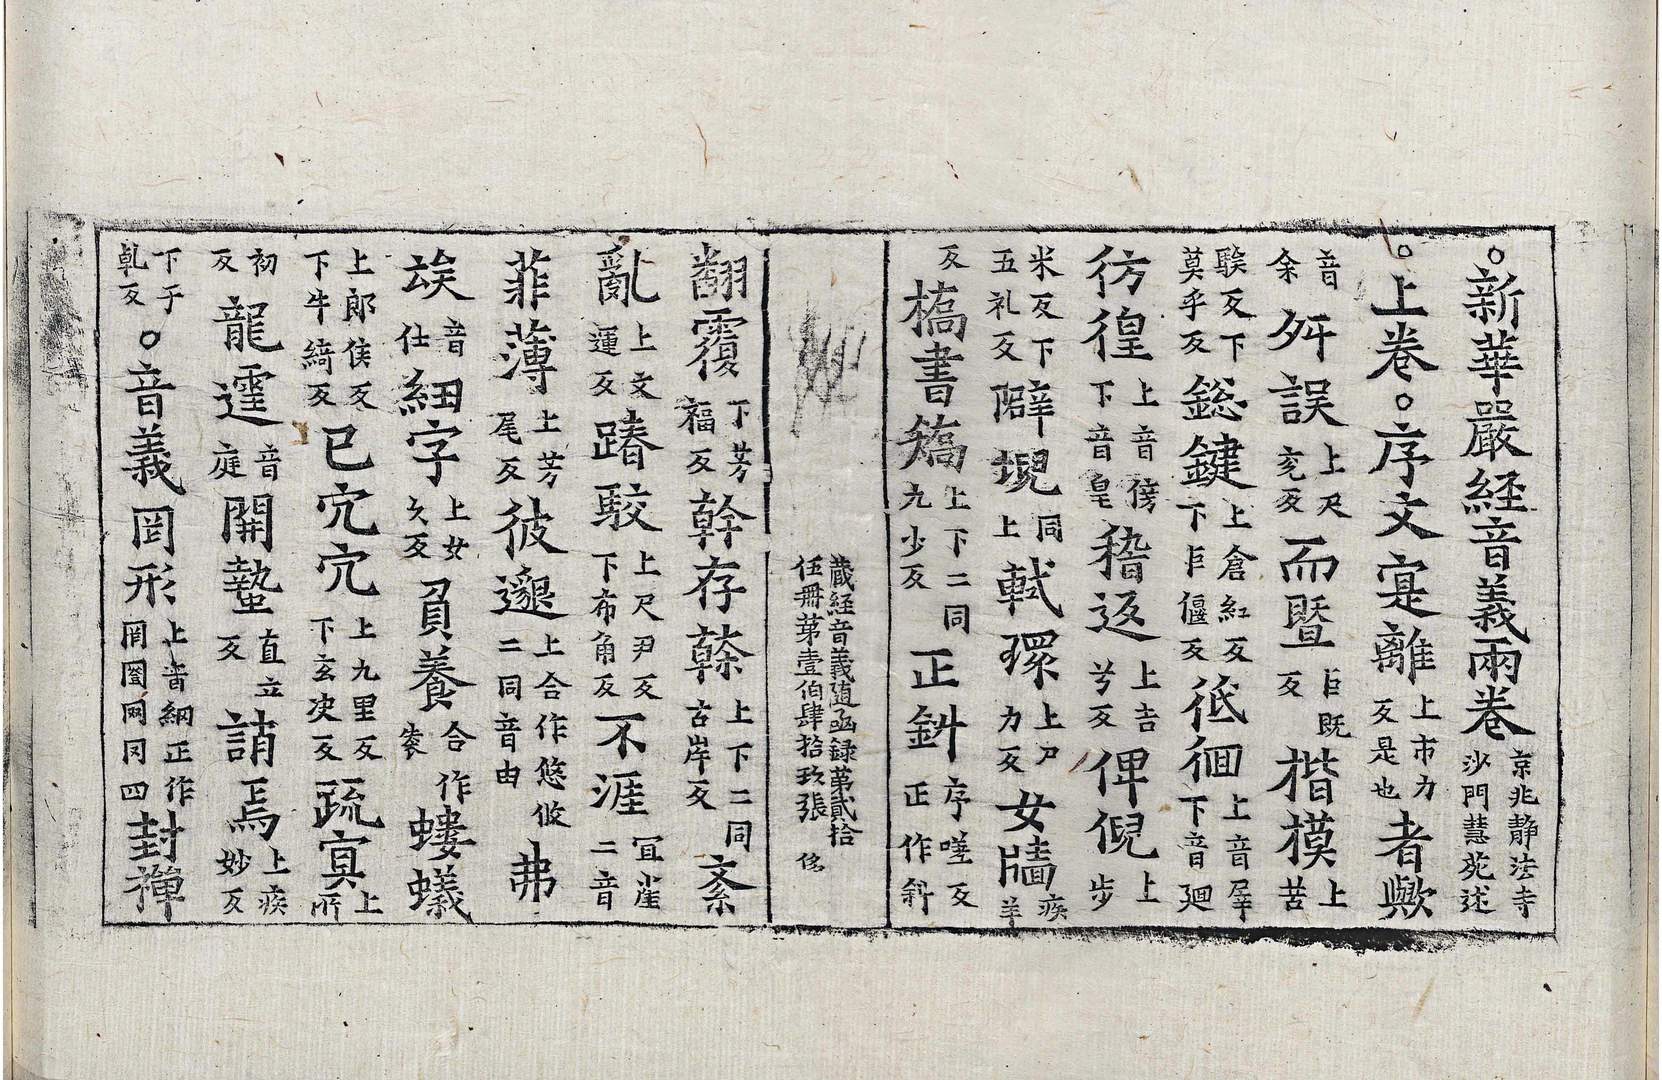 ○新華嚴經音義兩卷京兆靜法寺沙門慧苑述
○上卷○序文寔離上市力反是也者歟
音余舛誤上尺兗反而暨巨既反楷模上苦
駭反下莫乎反鍯鍵上倉紅反下巨偃反彽徊上音犀下音廻
彷徨上音傍下音皇稽返上吉兮反俾倪上步
米反下五礼反僻堄同上軾環上尸力反女牆疾羊
反槁書矯上下二同九少反正斜序嗟反正作斜
藏經音義隨函録第貳拾
伍冊第壹伯肆拾玖張
翻覆下芳福反幹存榦上下二同古岸反紊
亂上文運反踳駮上尺尹反下布角反不涯冝崖二音
菲薄上芳尾反彼邈上合作悠攸二同音由弗
竢音仕細字上女久反負養合作蟻螻
上郎侯反下牛綺反已穴穴上九里反下玄决反疏寘上所
初反龍霆音庭開蟄直立反誚焉上疾妙反
下于乹反○音義罔形上音網正作罔四封禪